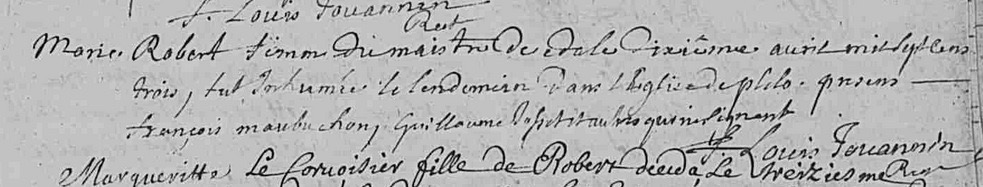 f. Louis Jouannin
Rect
Marie Robert femme du maistre decda le dixiéme avril mil sept cens
trois, fut Inhumée le lendemain dans l'Eglise de plelo. presens
françois maubuchon, Guillaume & autres qui ne signent
f. Louis Jouannin
Margueritte Le Corvoisier fille de Robert deceda Le treziesme Rect